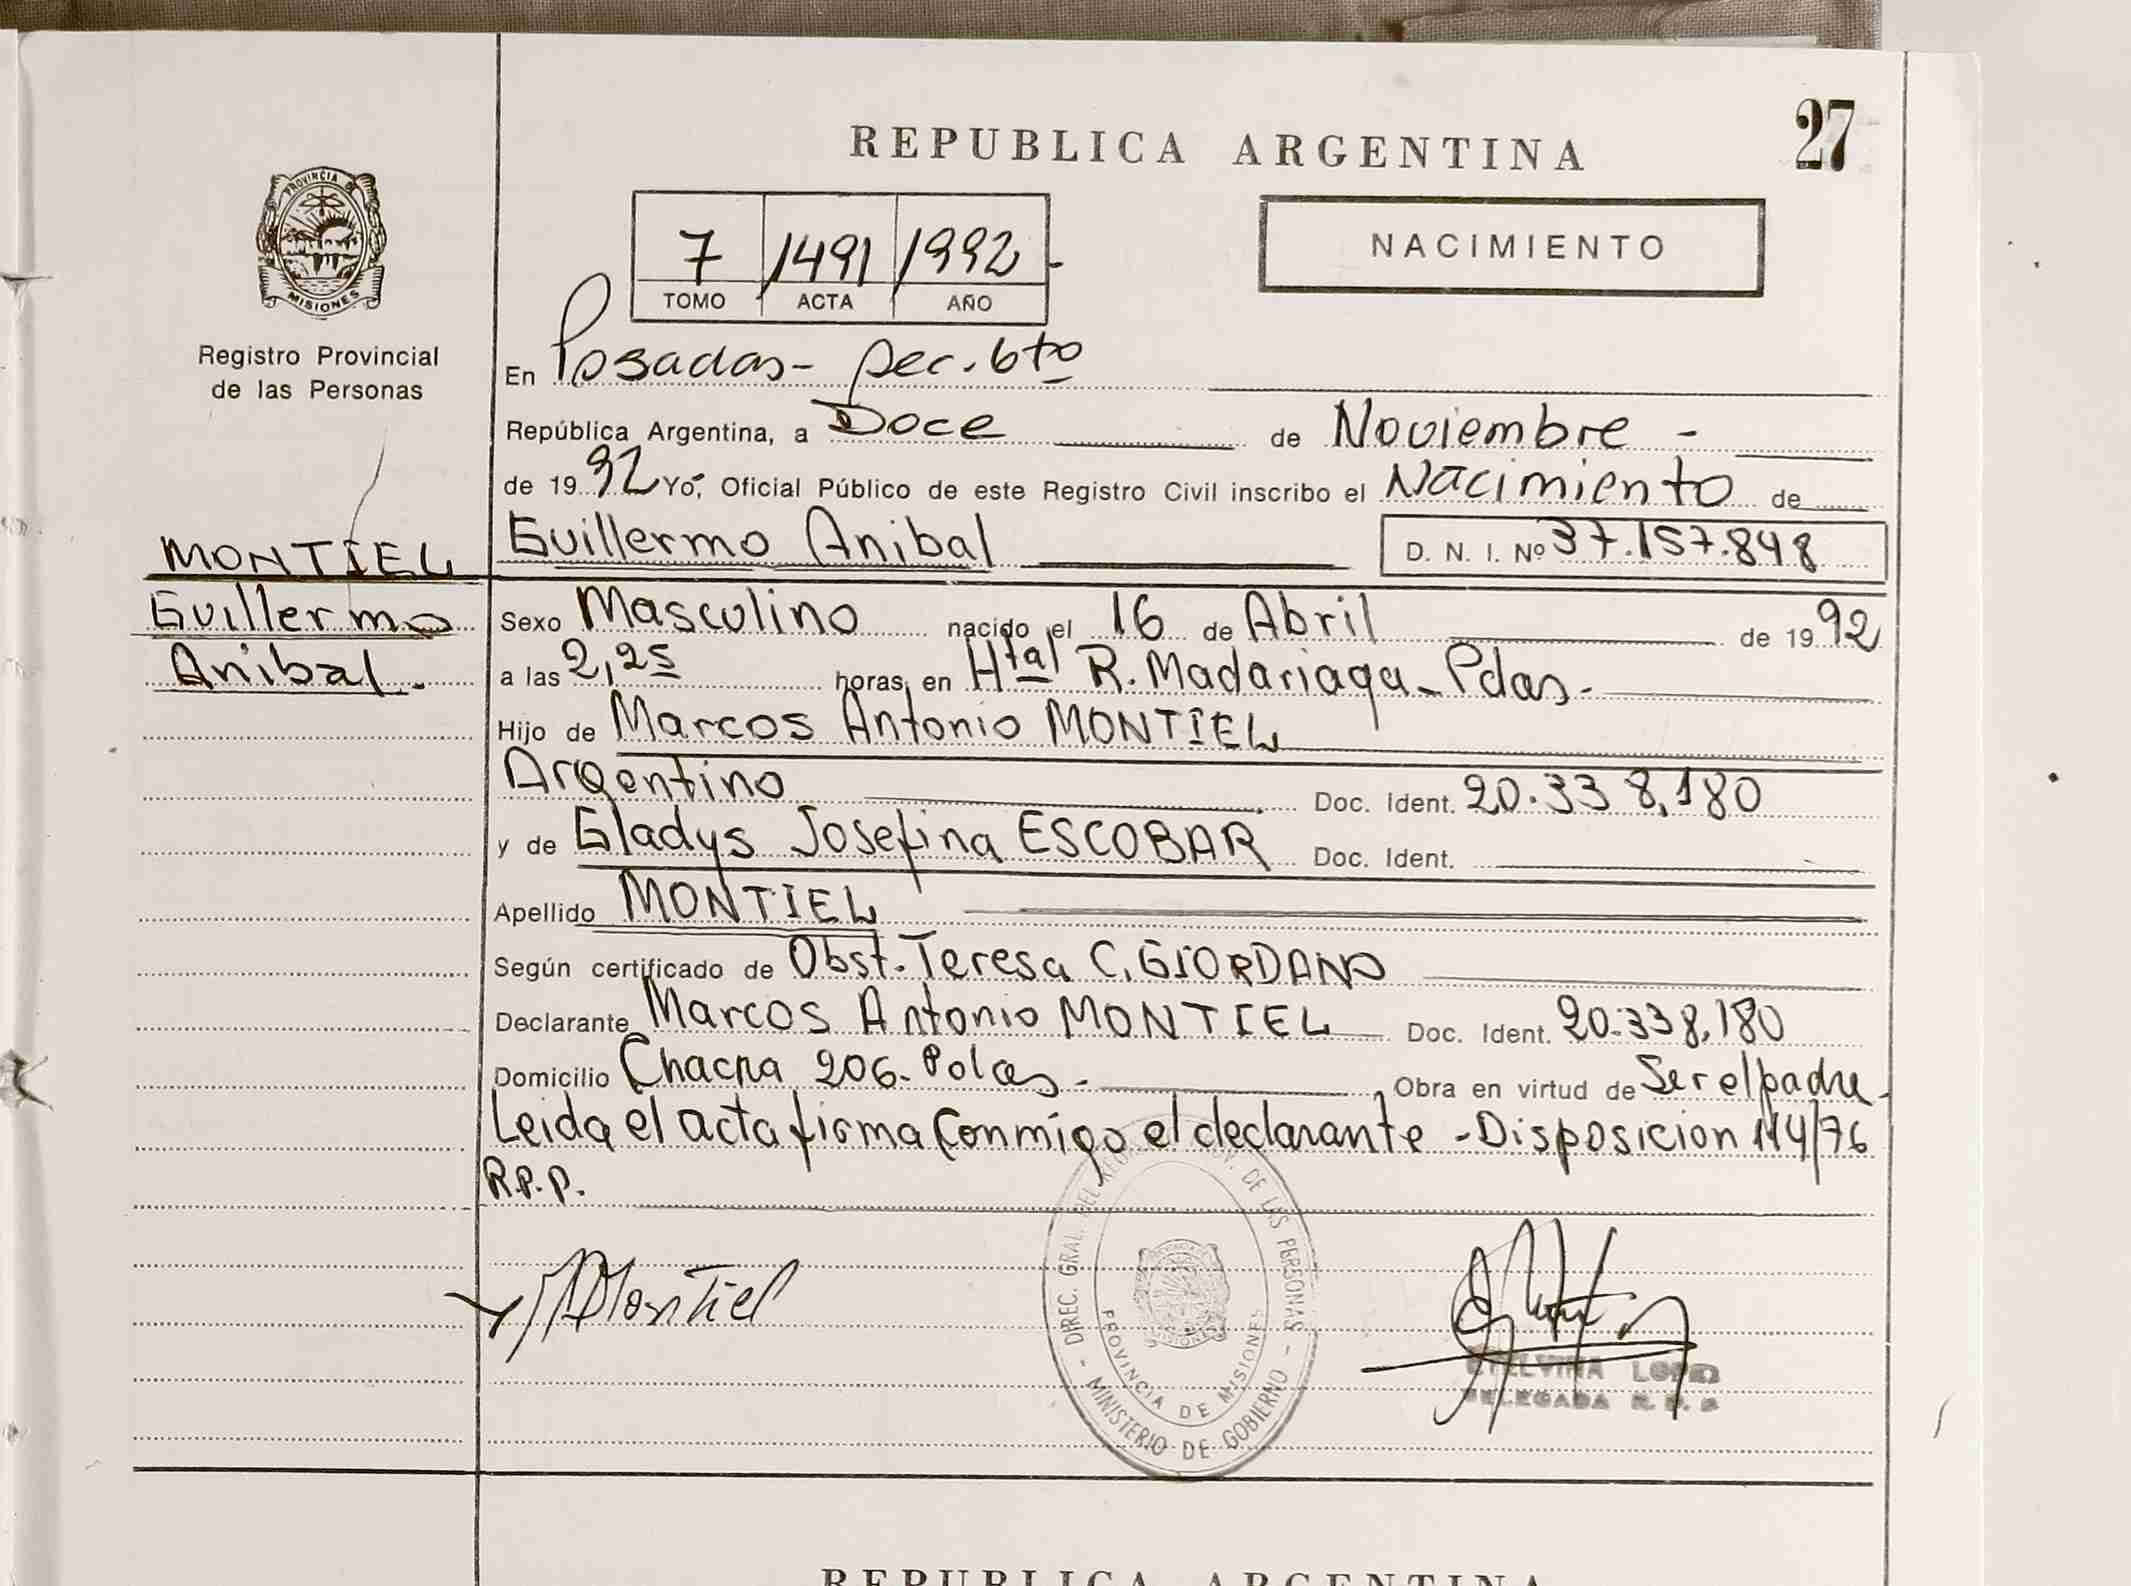 27
REPUBLICA ARGENTINA
NACIMIENTO
7 1491 1992
TOMO ACTA AÑO
PROVINCIA DE
MISIONES
Registro Provincial
de las Personas
En Posadas- Sec. 6to
República Argentina, a Doce de Noviembre -
de 1992 Yo, Oficial Público de este Registro Civil inscribo el Nacimiento de
Guillermo Anibal D. N. I. Nº 37.157.848
MONTIEL
Guillermo
Anibal.
Sexo Masculino nacido el 16 de Abril de 1992
a las 2,25 horas, en Htal R. Madariaga - Pdas.
Hijo de Marcos Antonio MONTIEL
Argentino Doc. Ident. 20.338,180
y de Gladys Josefina ESCOBAR Doc. Ident.
Apellido MONTIEL
Según certificado de Obst. Teresa C. GIORDANO
Declarante Marcos Antonio MONTIEL Doc. Ident. 20.338,180
Domicilio Chacra 206. Pdas. Obra en virtud de Ser el padre
Leida el acta firma Conmigo el declarante - Disposicion 114/76
R.P.P.
Montiel
DIREC. GRAL. DEL DE LAS PERSONAS
PROVINCIA DE MISIONES
- MINISTERIO DE GOBIERNO -
ETELVINA LOPEZ
DELEGADA R. P. P.
REPUBLICA ARGENTINA